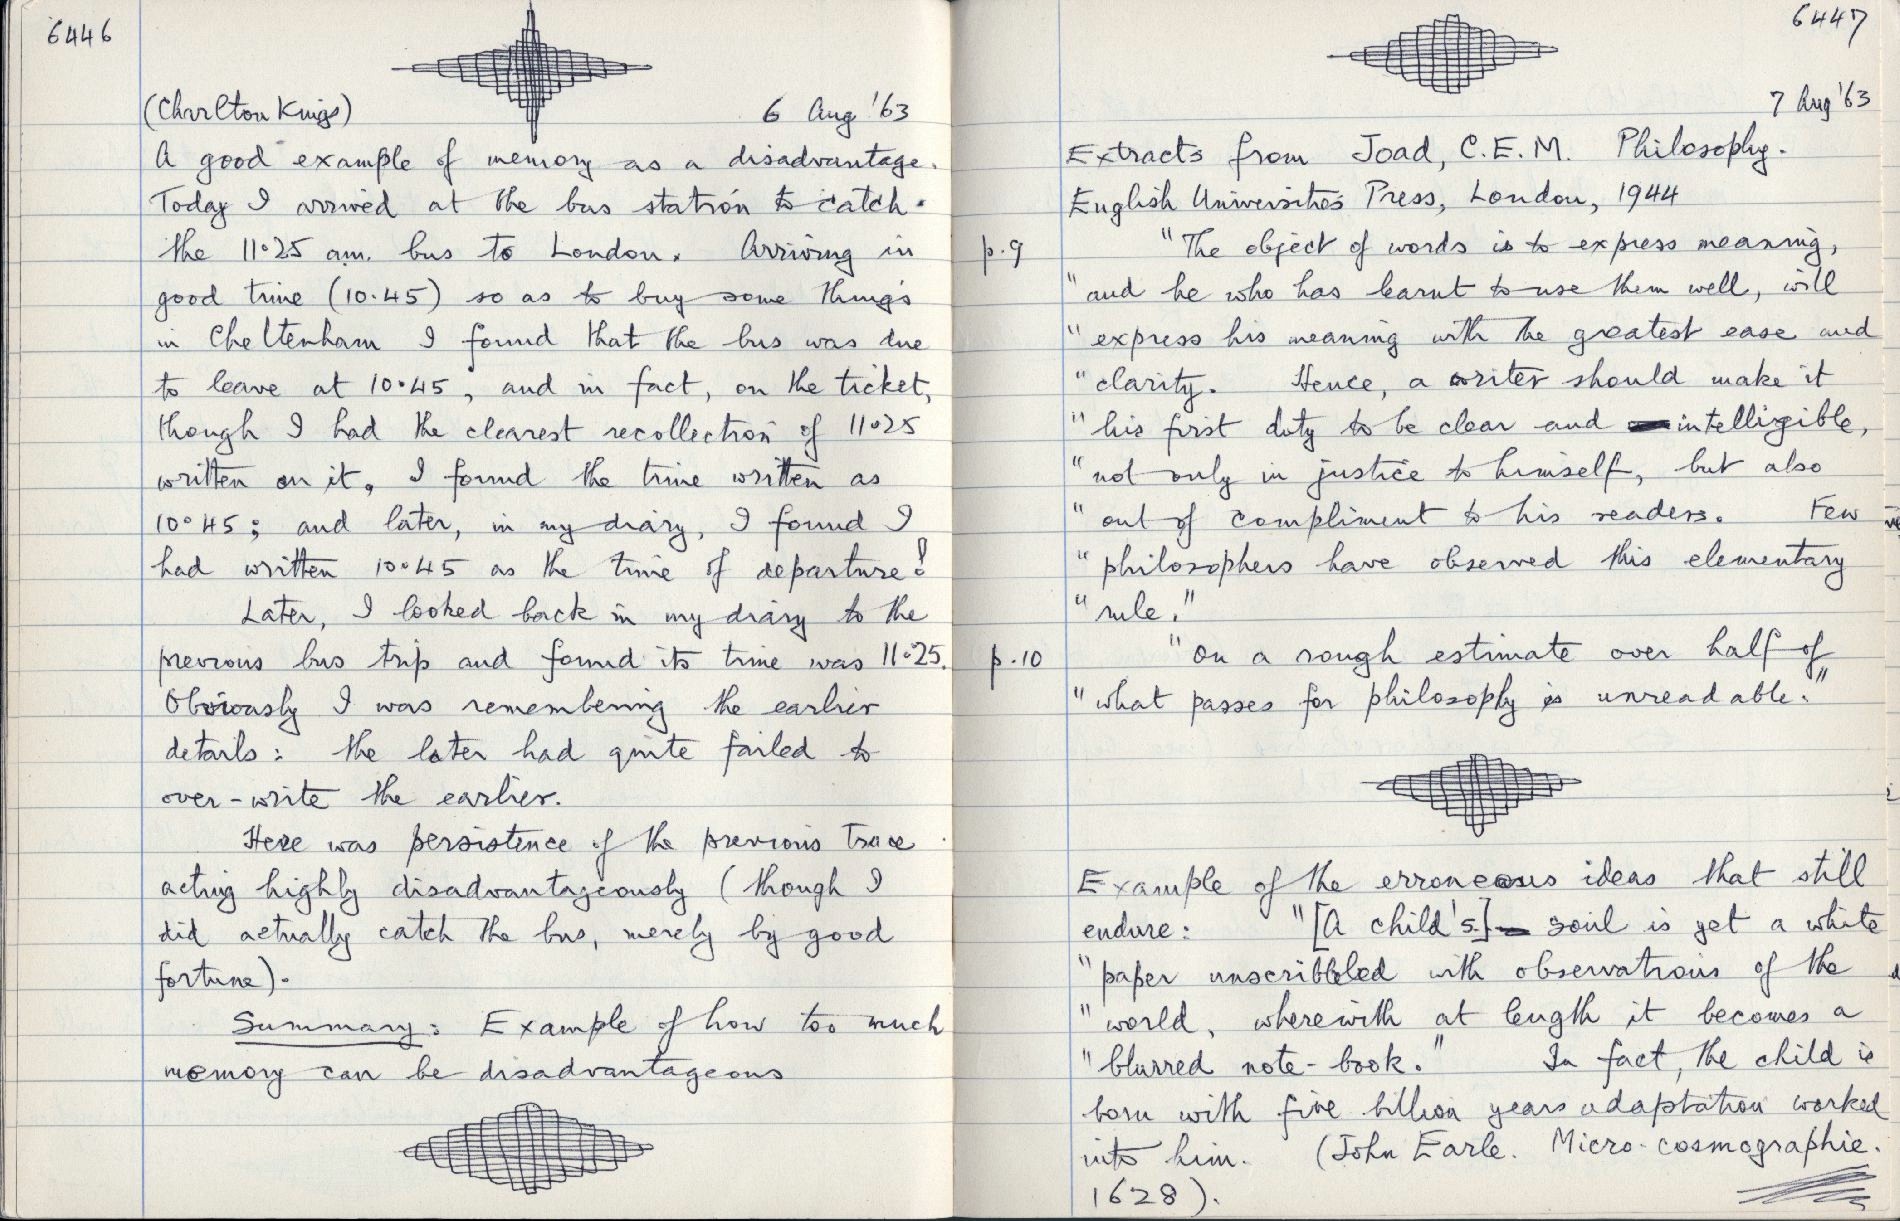 6446
(Charlton Kings) 6 Aug '63
A good example of memory as a disadvantage.
Today I arrived at the bus station to catch
the 11·25 am. bus to London. Arriving in
good time (10·45) so as to buy some things
in Cheltenham I found that the bus was due
to leave at 10·45, and in fact, on the ticket,
though I had the clearest recollection of 11·25
written on it, I found the time written as
10·45; and later, in my diary, I found I
had written 10·45 as the time of departure!
Later, I looked back in my diary to the
previous bus trip and found its time was 11·25.
Obviously I was remembering the earlier
details: the later had quite failed to
over-write the earlier.
Here was persistence of the previous trace
acting highly disadvantageously (though I
did actually catch the bus, merely by good
fortune).
Summary: Example of how too much
memory can be disadvantageous
6447
7 Aug '63
Extracts from Joad, C.E.M. Philosophy.
English Universities Press, London, 1944
p.9 "The object of words is to express meaning,
"and he who has learnt to use them well, will
"express his meaning with the greatest ease and
"clarity. Hence, a writer should make it
"his first duty to be clear and intelligible,
"not only in justice to himself, but also
"out of compliment to his readers. Few
"philosophers have observed this elementary
"rule."
p.10 "On a rough estimate over half of
"what passes for philosophy is unreadable."
Example of the erroneous ideas that still
endure: "[A child's] soul is yet a white
"paper unscribbled with observations of the
"world, wherewith at length it becomes a
"blurred note-book." In fact, the child is
born with five billion years adaptation worked
into him. (John Earle. Micro-cosmographie.
1628).